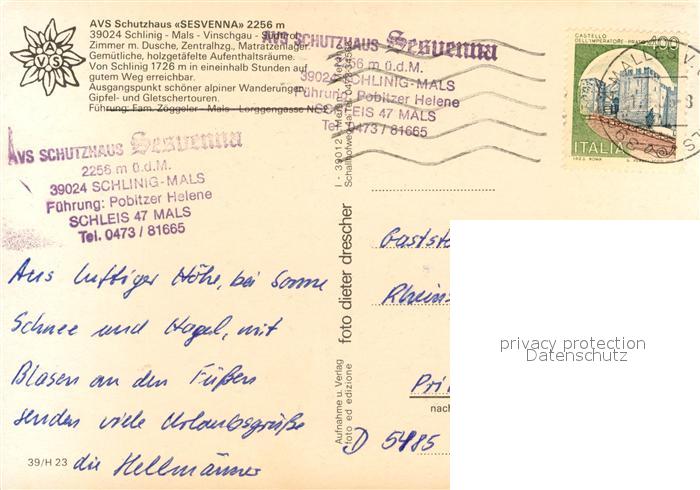 AVS Schutzhaus «SESVENNA» 2256 m
39024 Schlinig - Mals - Vinschgau - Südtirol
Zimmer m. Dusche, Zentralhzg., Matratzenlager.
Gemütliche, holzgetäfelte Aufenthaltsräume.
Von Schlinig 1726 m in eineinhalb Stunden auf
gutem Weg erreichbar.
Ausgangspunkt schöner alpiner Wanderungen,
Gipfel- und Gletschertouren.
Führung: Fam. Zöggeler - Mals - Lorggengasse Nr. 2
AVS
AVS SCHUTZHAUS Sesvenna
2256 m ü.d.M.
39024 SCHLINIG-MALS
Führung: Pobitzer Helene
SCHLEIS 47 MALS
Tel. 0473 / 81665
AVS SCHUTZHAUS Sesvenna
2256 m ü.d.M.
39024 SCHLINIG-MALS
Führung: Pobitzer Helene
SCHLEIS 47 MALS
Tel. 0473 / 81665
Aus luftiger Höhe, bei Sonne
Schnee und Hagel, mit
Blasen an den Füßen
senden viele Urlaubsgrüße
die Hellmänner
39/H 23
foto dieter drescher
Aufnahme u. Verlag
foto ed edizione
I - 39012
CASTELLO
DELL'IMPERATORE - PRATO
400
ITALIA
MALLES V.
Rhein
nach
D 5485
privacy protection
Datenschutz